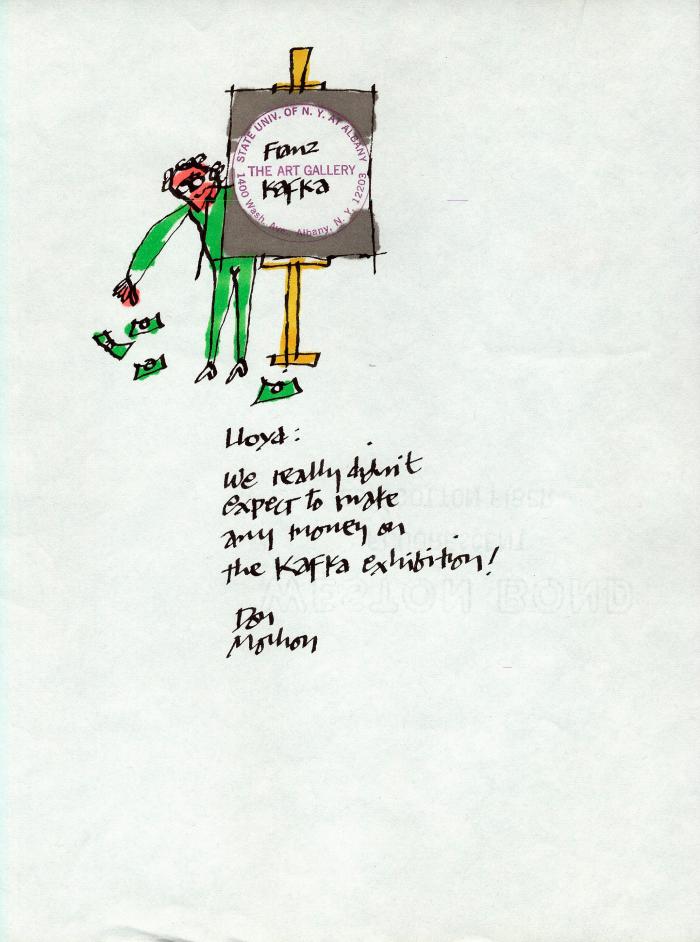 STATE UNIV. OF N. Y. AT ALBANY
Franz
THE ART GALLERY
Kafka
1400 Wash. Ave. Albany, N. Y. 12203
Lloyd:
We really didn't
expect to make
any money on
the Kafka exhibition!
Don
Mochon
COTTON FIBER
WESTON BOND